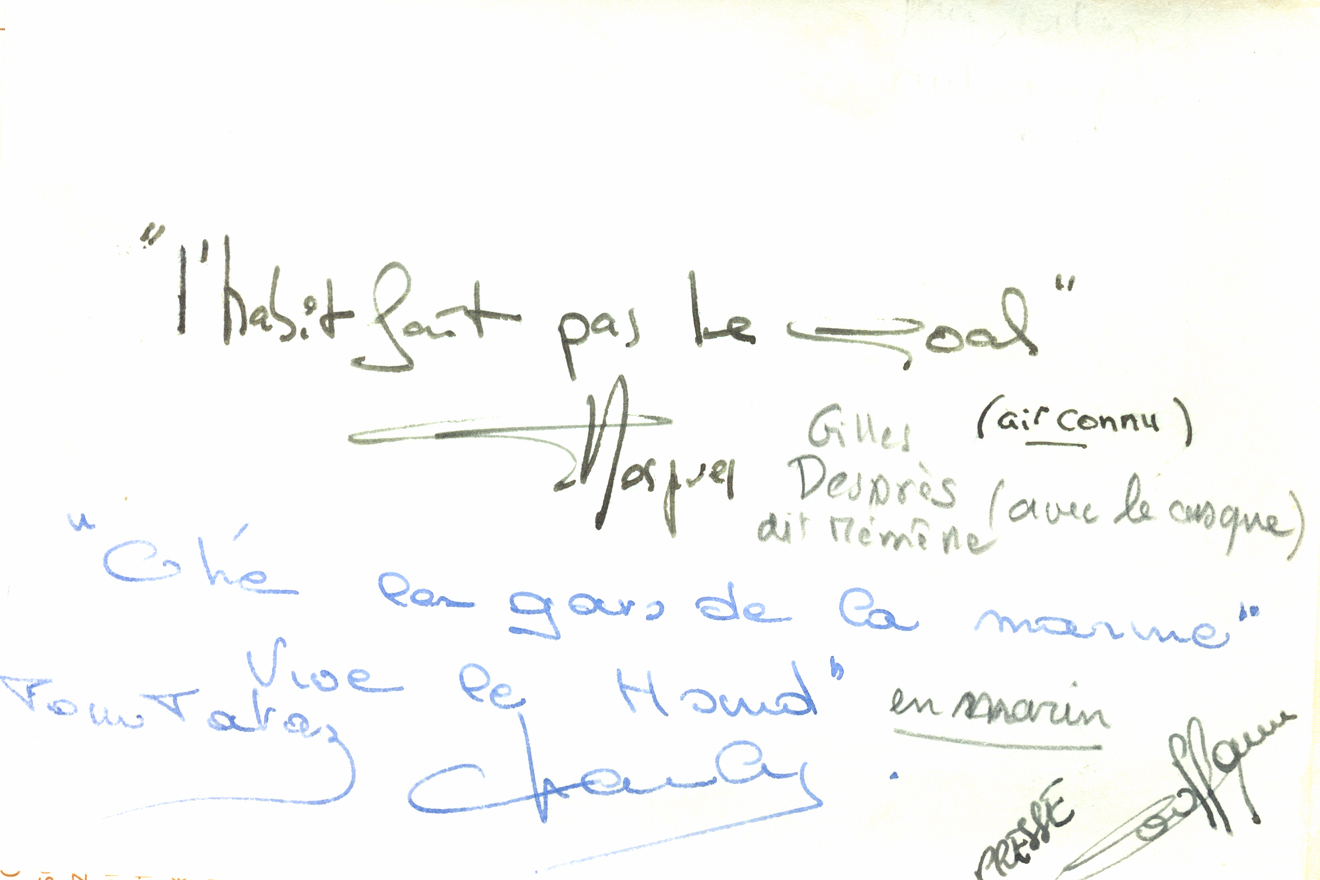 "l'habit fait pas le goal"
(air connu)
Gilles
Desprès (avec le casque)
dit Mémène
"Ohé les gars de la marine"
Vive le Hand"
en marin
Tom Tataz
Charly
PRESSE